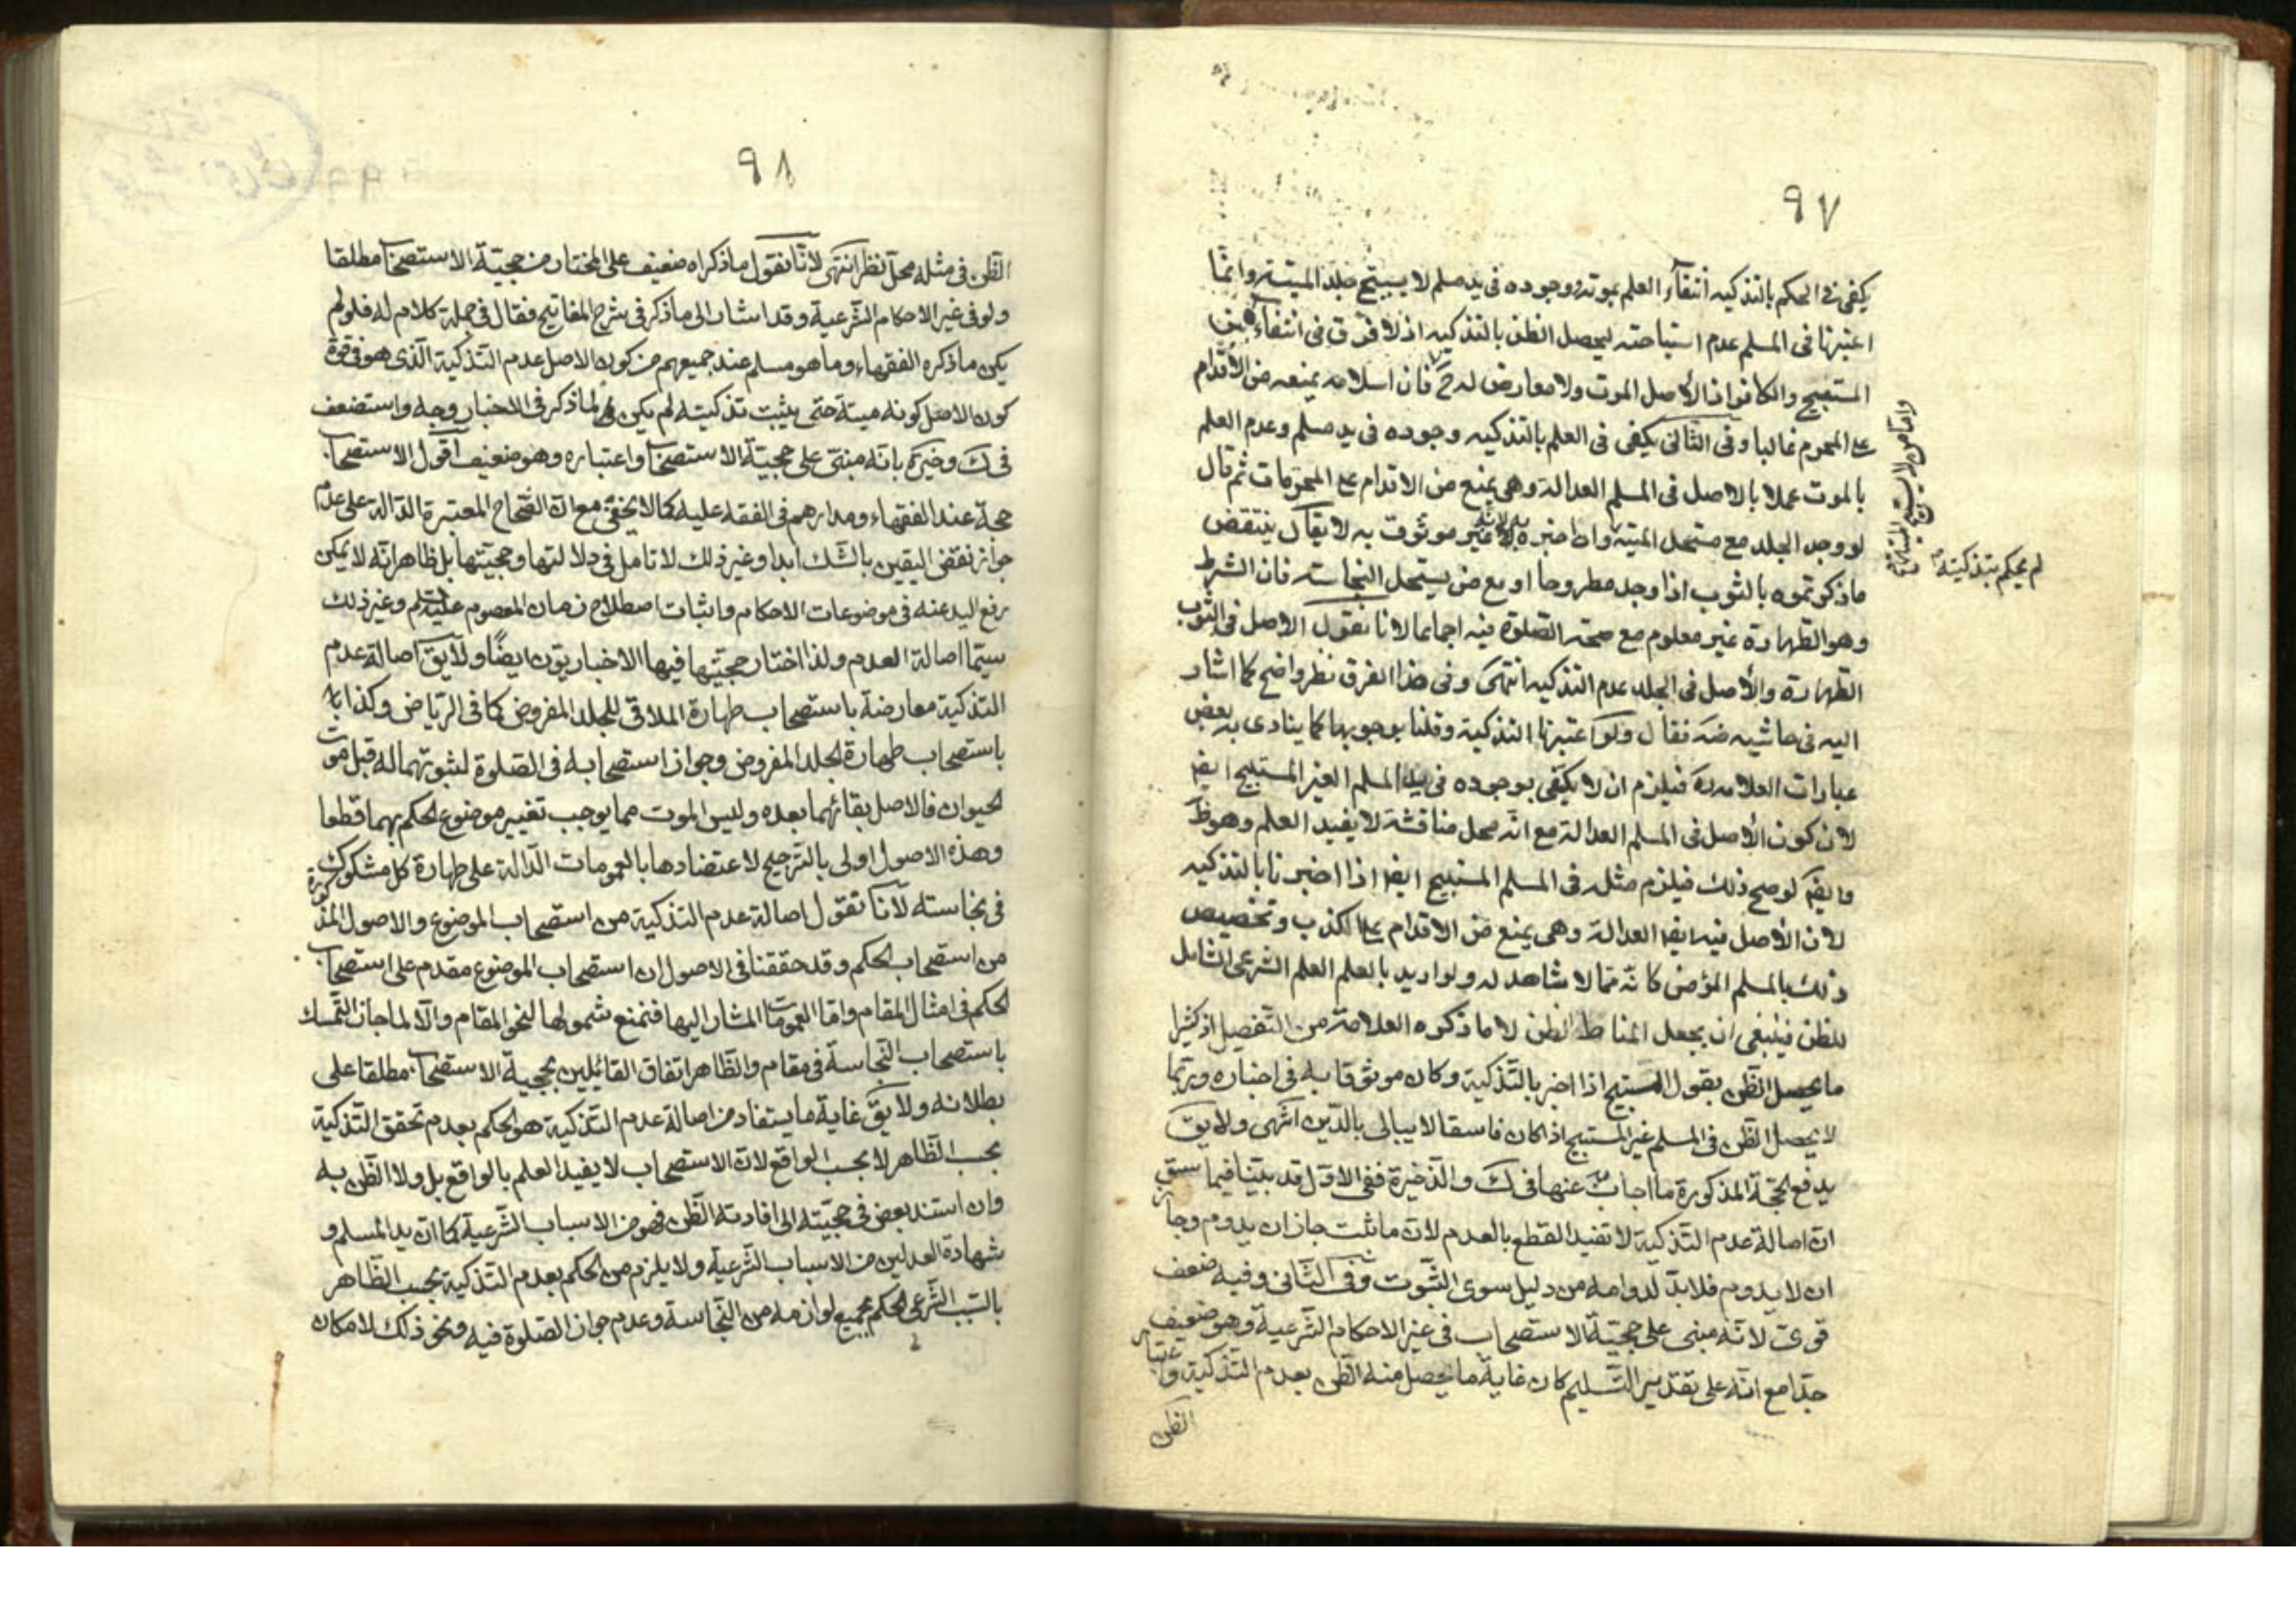 ٩٧
يكفى فى الحكم بالتذكيه انتفاء العلم بموته ووجوده فى يد مسلم لا يستبيح جلد الميتة وانما
اعتبرنا فى المسلم عدم استباحته ليحصل الظن بالتذكيه اذ لا فرق فى انتفاء بين
المستبيح والكافر اذ الأصل الموت ولا معارض له ح فان اسلامه يمنعه من الاقدام
على المحرم غالبا وفى الثانى يكفى فى العلم بالتذكيه وجوده فى يد مسلم وعدم العلم
بالموت عملا بالاصل فى المسلم العدالة وهى يمنع من الاقدام على المحرمات ثم قال
لو وجد الجلد مع مستحل الميتة واخبره لانه غير موثوق به لا يقال ينتقض
ماذكرتموه بالثوب اذا وجد مطروحا او مع من يستحل النجاسته فان الشرط
وهو الطهارة غير معلوم مع صحة الصلوة فيه اجماعا لانا نقول الاصل فى الثوب
الطهارة والأصل فى الجلد عدم التذكيه انتهى وفى هذا الفرق نظر واضح كما اشار
اليه فى حاشيه ضه فقال ولو اعتبرنا التذكية وقلنا بوجوبها كما ينادى به بعض
عبارات العلامه ره فيلزم ان لا يكتفى بوجوده فى يد المسلم الغير المستبيح ايضا
لان كون الأصل فى المسلم العدالة مع انه محل مناقشة لا يفيد العلم وهو ظ
وايضا لو صح ذلك فيلزم مثله فى المسلم المستبيح ايضا اذا اخبرنا بالتذكيه
لان الأصل فيه ايضا العدالة وهى يمنع من الاقدام على الكذب وتخصيص
ذلك بالمسلم المؤمن كانه مما لا شاهد له ولو اريد بالعلم العلم الشرعى الشامل
للظن فينبغى ان يجعل المناط الظن لا ما ذكره العلامة من التفصيل اذ كثيرا
ما يحصل الظن بقول المستبيح اذا اخبر بالتذكية وكان موثوقا به فى اخباره وربما
لا يحصل الظن فى المسلم غير المستبيح اذا كان فاسقا لا يبالى بالدين انتهى ولا يق
يدفع الحجة المذكورة ما اجاب عنها فى ك والذخيرة ففى الاول قد بينا فيما سبق
ان اصالة عدم التذكية لا تفيد القطع بالعدم لان ما ثبت جاز ان يدوم وجاز
ان لا يدوم فلا بد لدوامه من دليل سوى الثبوت وفى الثانى وفيه ضعف
قوى لانه مبنى على حجية الاستصحاب فى غير الاحكام الشرعية وهو ضعيف
جدا مع انه على تقدير التسليم كان غاية ما يحصل منه الظن بعدم التذكية واعتبار
الظن
واما من لا يستبيح الميتة
لم يحكم بتذكيته
٩٨
الظن فى مثله محل نظر انتهى لانا نقول ما ذكراه ضعيف على المختار من حجية الاستصحاب مطلقا
ولو فى غير الاحكام الشرعية وقد اشار الى ما ذكر فى شرح المفاتيح فقال فى جملة كلام له فلو لم
يكن ماذكره الفقهاء وما هو مسلم عند جميعهم من كون الاصل عدم التذكية الذى هو فى قوة
كون الاصل كونه ميتة حتى يثبت تذكيته لم يكن لما ذكر فى الاخبار وجه واستضعف
فى ك وخيرة بانه مبنى على حجية الاستصحاب واعتباره وهو ضعيف اقول الاستصحاب
حجة عند الفقهاء ومدارهم فى الفقه عليه كما لا يخفى مع ان الصحاح المعتبرة الدالة على عدم
جواز نقض اليقين بالشك ابدا وغير ذلك لا تامل فى دلالتها وحجيتها بل ظاهر انه لا يمكن
رفع اليد عنه فى موضوعات الاحكام واثبات اصطلاح زمان المعصوم عليه السلم وغير ذلك
سيما اصالة العدم ولذا اختار حجيتها فيها الاخباريون ايضا ولا يق اصالة عدم
التذكية معارضة باستصحاب طهارة الملاقى للجلد المفروض كما فى الرياض وكذا
باستصحاب طهارة الجلد المفروض وجواز استصحابه فى الصلوة لثبوتهما له قبل موت
الحيوان فالاصل بقائهما بعده وليس الموت مما يوجب تغيير موضوع الحكم بهما قطعا
وهذه الاصول اولى بالترجيح لاعتضادها بالعمومات الدالة على طهارة كل مشكوك
فى نجاسته لانا نقول اصالة عدم التذكية من استصحاب الموضوع والاصول المذكورة
من استصحاب الحكم وقد حققنا فى الاصول ان استصحاب الموضوع مقدم على استصحاب
الحكم فى امثال المقام واما العمومات المشار اليها فنمنع شمولها لنحو المقام والا لما جاز التمسك
باستصحاب النجاسة فى مقام والظاهر اتفاق القائلين بحجية الاستصحاب مطلقا على
بطلانه ولا يق غاية ما يستفاد من اصالة عدم التذكية هو الحكم بعدم تحقق التذكية
بحسب الظاهر لا بحسب الواقع لان الاستصحاب لا يفيد العلم بالواقع بل ولا الظن به
وان استند بعض فى حجيته الى افادته الظن فهو من الاسباب الشرعية كما ان يد المسلم و
شهادة العدلين من الاسباب الشرعية ولا يلزم من الحكم بعدم التذكية بحسب الظاهر
بالسبب الشرعى الحكم بجميع لوازمه من النجاسة وعدم جواز الصلوة فيه ونحو ذلك لامكان